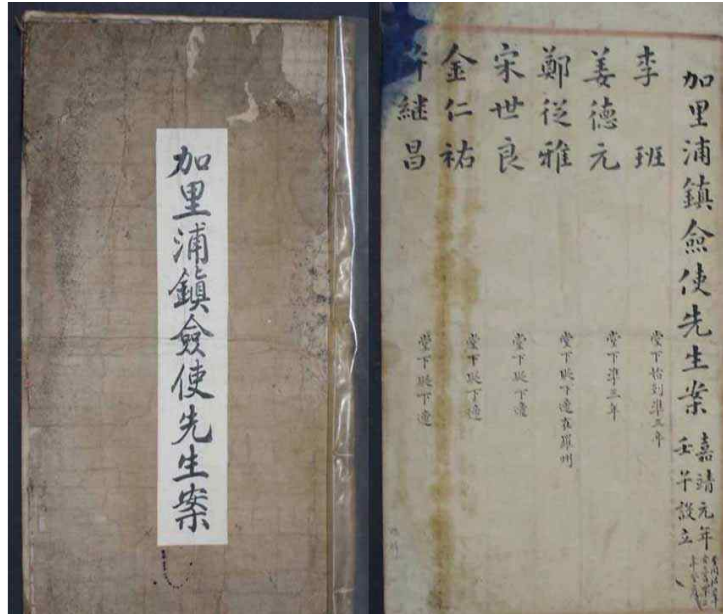 加里浦鎭僉使先生案
加里浦鎭僉使先生案 嘉靖元年
壬午設立
李班 堂下始到準三年
姜德元 堂下準三年
鄭從雅 堂下貶下遞在羅州
宋世良 堂下貶下遞
金仁祐 堂下貶下遞
継昌 堂下貶下遞